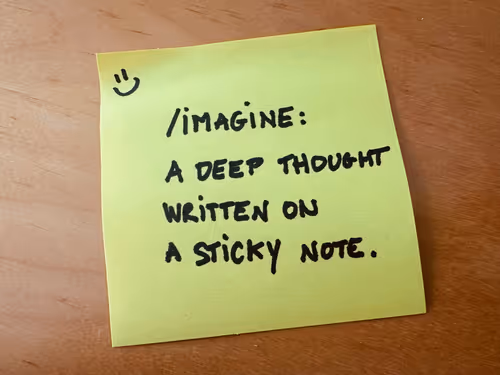 /IMAGINE:
A DEEP THOUGHT
WRITTEN ON
A STICKY NOTE.